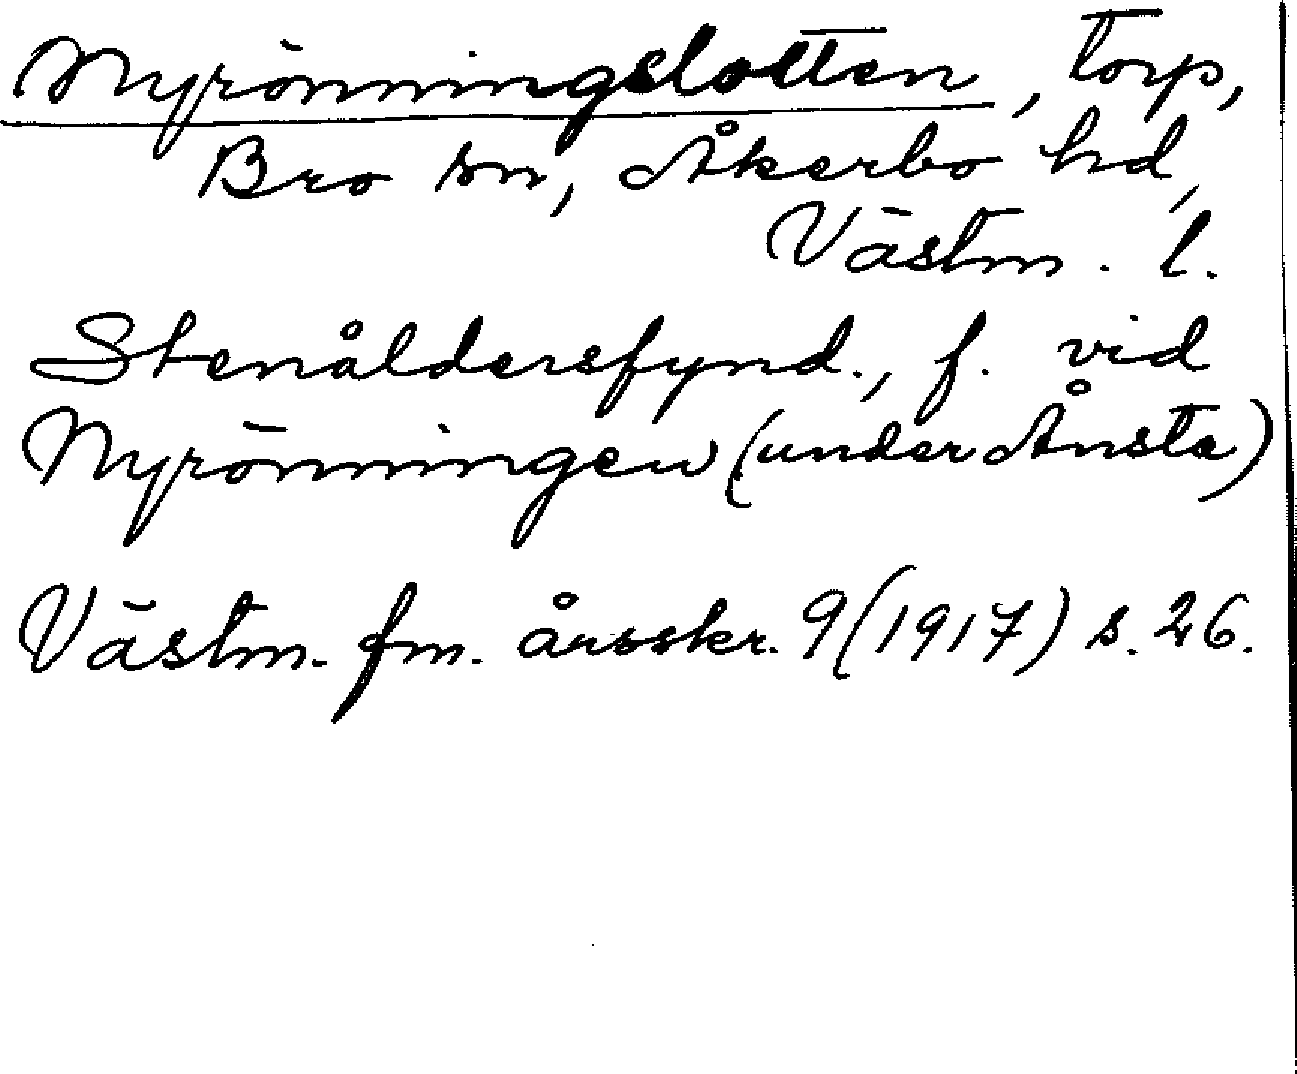 Nyrönningslotten, torp,
Bro sn, Åkerbo hd,
Västm. l.
Stenåldersfynd., f. vid
Nyrönningen (under Ånsta)
Västm. fm. årsskr. 9 (1917) s. 26.